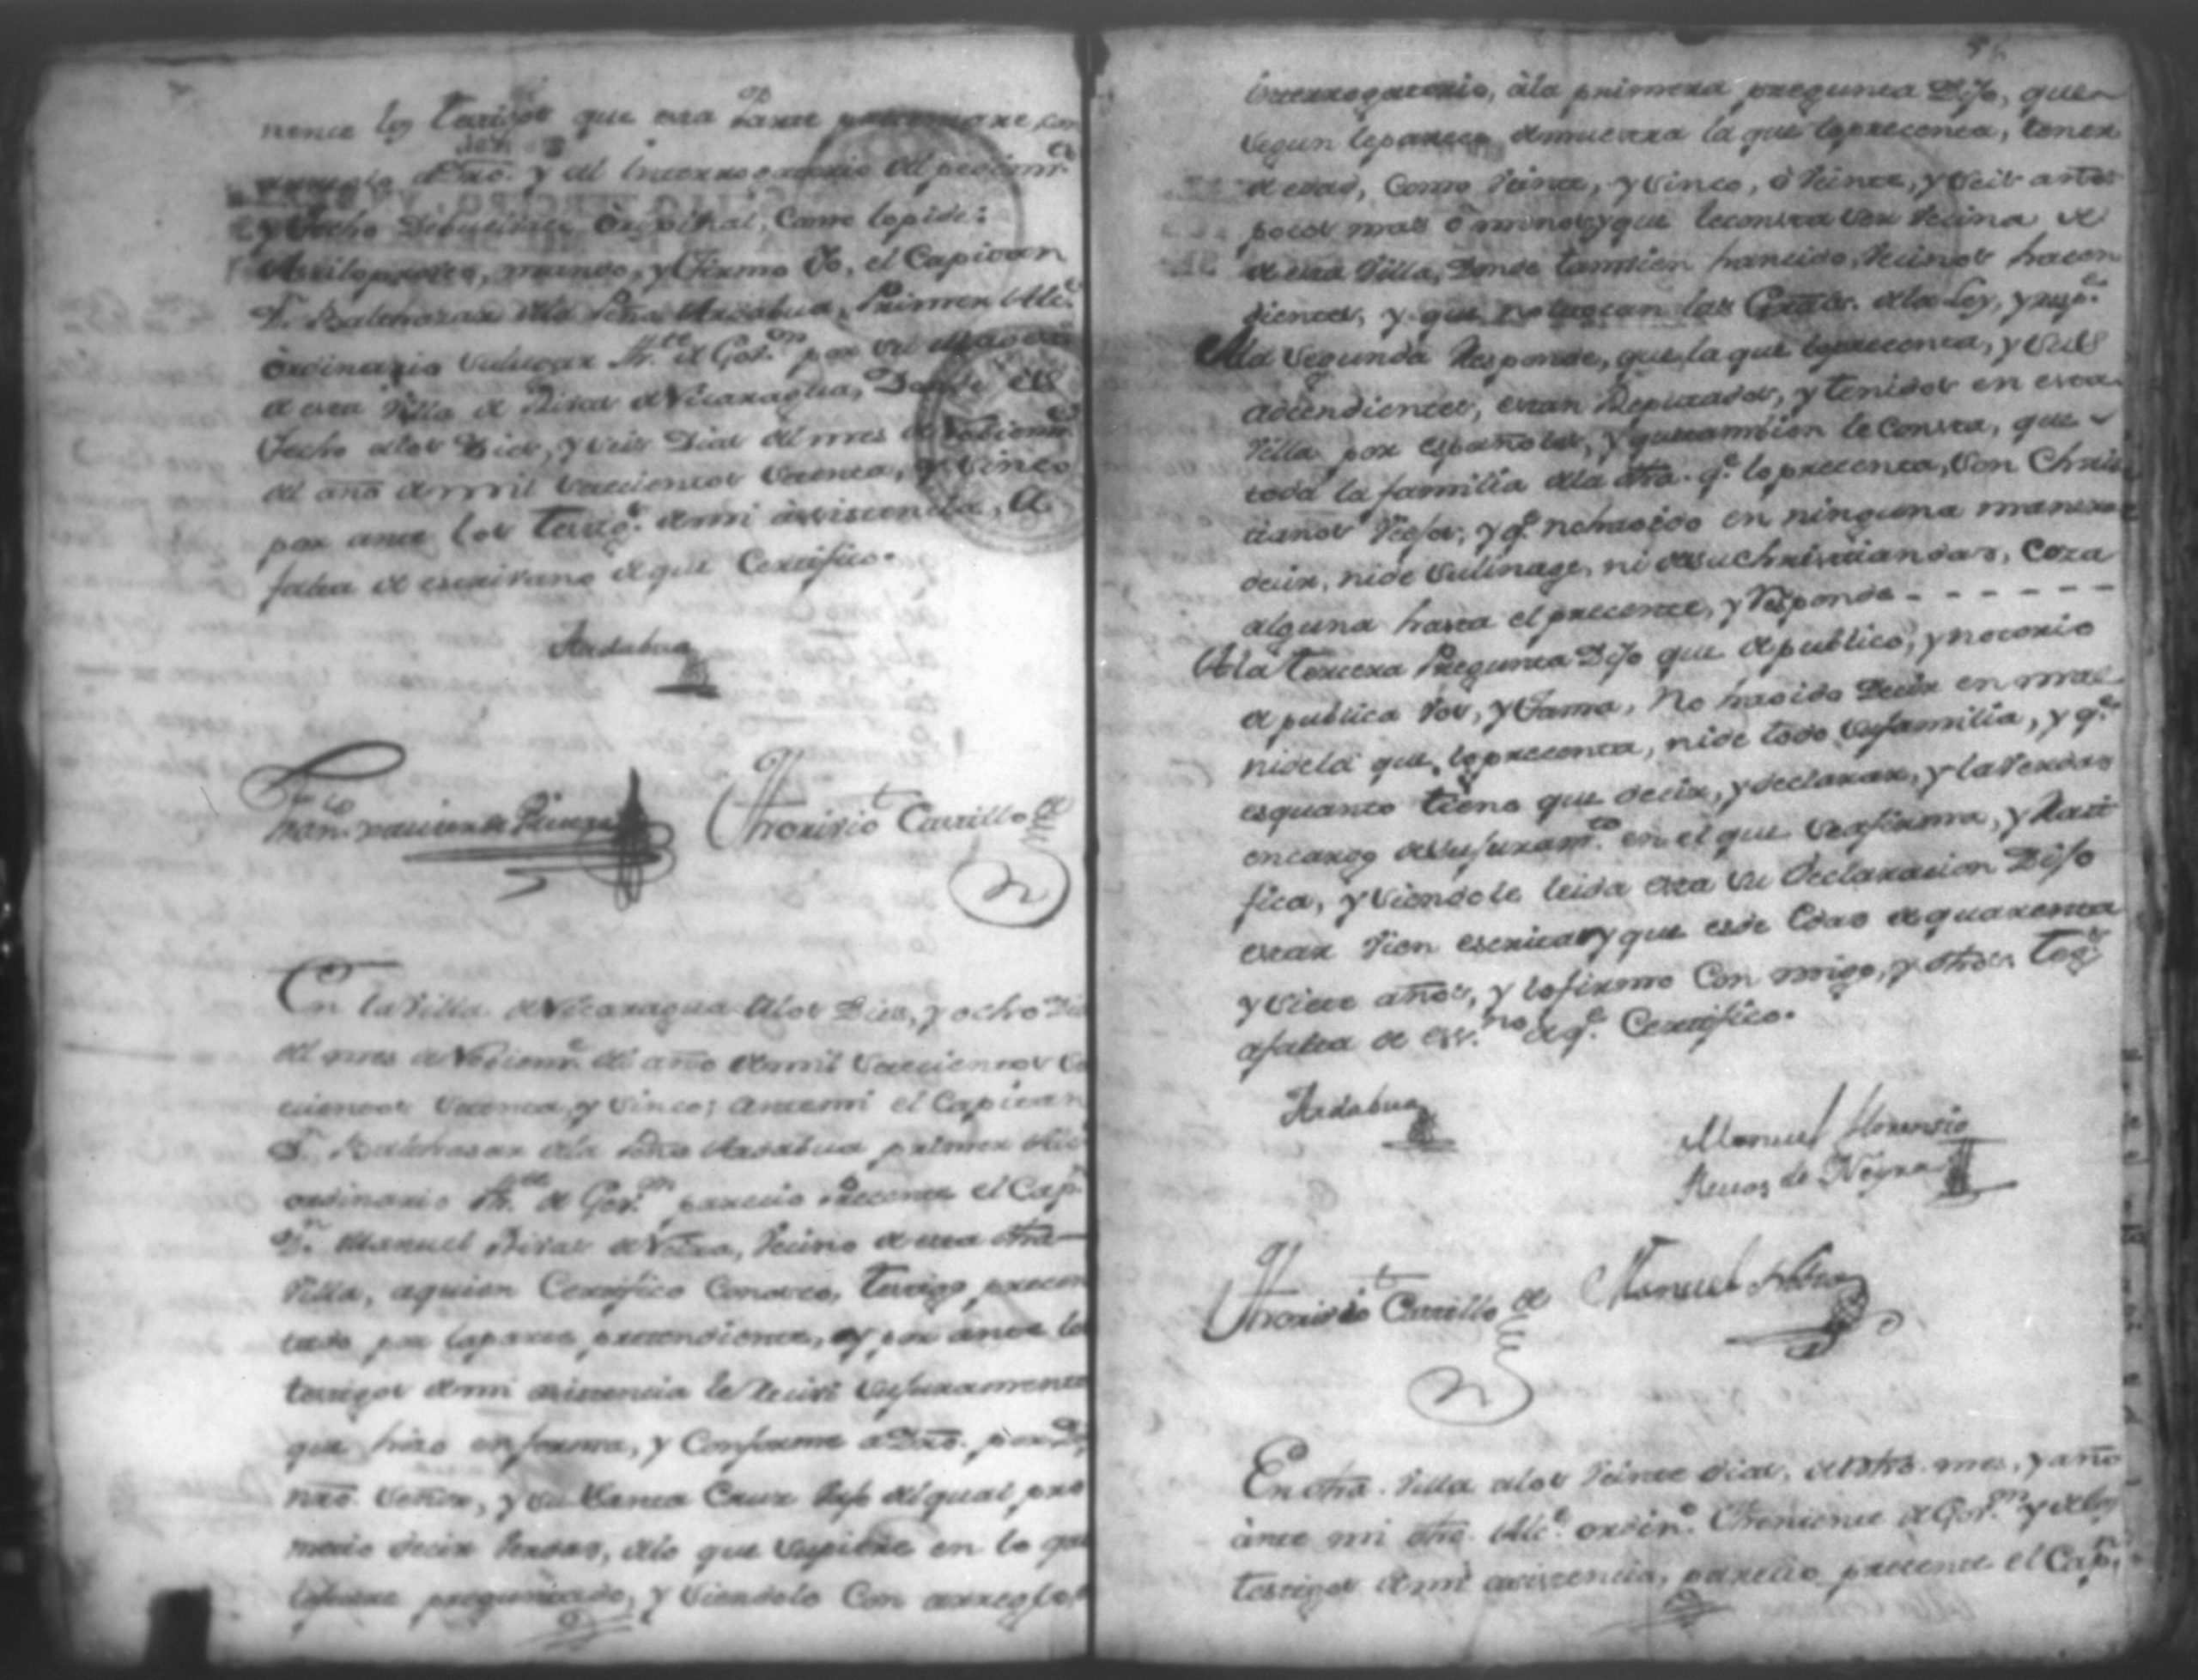 nence los testigos que esta parte presentare, con
arreglo a dro. y al interrogatorio del pedimto.
y fecho debuelvase original, como lo pide:
Assi lo proveo, mando, y firmo Yo, el Capitan
Dn. Balthasar de la Peña Ardabua, Primer Alce.
ordinario Thte. de Govon. por su
de esta Villa de Rivas de Nicaragua, Donde es
fecho a los Dies, y seis Dias del mes de Noviembre
del año de mil setecientos setenta, y sinco
por ante los testigos. de mi assistencia, a
falta de escrivano de que Certifico.
Ardabua
Franco. Thorivio Carrillo
En la Villa de Nicaragua a los Dies, y ocho Dias
del mes de Noviemre. del año de mil setecientos se
tecientos setenta, y sinco; ante mi el Capitan
Dn. Balthasar de la Peña Ardabua primer Alce.
ordinario Thte. de Govon. parecio Precente el Capn.
Dn. Manuel Rivas de Neira, Vecino de esta dha
Villa, a quien Certifico Conosco, testigo precen
tado por la parte pretendiente, y por ante los
testigos de mi asistencia le Recivi su Juramento
que hizo en forma, y Conforme a Dro. por Ds.
nro. Señor, y su Santa Cruz vajo del qual pro
metio decir Verdad, de lo que supiere en lo que
le fuere preguntado, y siendolo Con arreglo al
interrogatorio, à la primera pregunta Dijo, que
segun le parece demuestra la que lo precenta, tener
de edad, como Veinte, y sinco, ò Veinte, y seis años
pocos mas ò menos y que le consta ser Vecina de
de esta Villa, Donde tambien han sido, Vecinos sus acen
dientes, y que no le tocan las Grales. de la Ley, y respe.
A la segunda Responde, que la que lo precenta, y sus
acendientes, estan Reputados, y tenidos en esta
Villa por españoles, y que tambien le Consta, que
toda la familia de la dha. qe. lo precenta, son Chris
tianos Viejos, y qe. no ha oido en ninguna manera
decir, ni de su linage, ni de su christiandad, Coza
alguna hasta el precente, y Responde
A la tercera Pregunta Dijo que de publico, y notorio
de publica Vos, y fama, No ha oido Decir en mal
ni de la que lo precenta, ni de toda su familia, y qe.
es quanto tiene que decir, y declarar, y la Verdad
en cargo de su Juramto. en el que se afirma, y Rati
fica, y siendole leida esta su Declaracion Dijo
estar Vien escrita y que es de Edad de quarenta
y siete años, y lo firmo Con migo, y dhos. tesgs.
a falta de essno. de qe. Certifico.
Ardabua Manuel Florensio
Rivas de Neyra
Thorivio Carrillo Manuel
En dha. Villa a los Veinte dias, de dho. mes, y año
ànte mi dho. Alce. ordino. Theniente de Govon. y de los
testigos de mi assistencia, parecio precente el Capn.